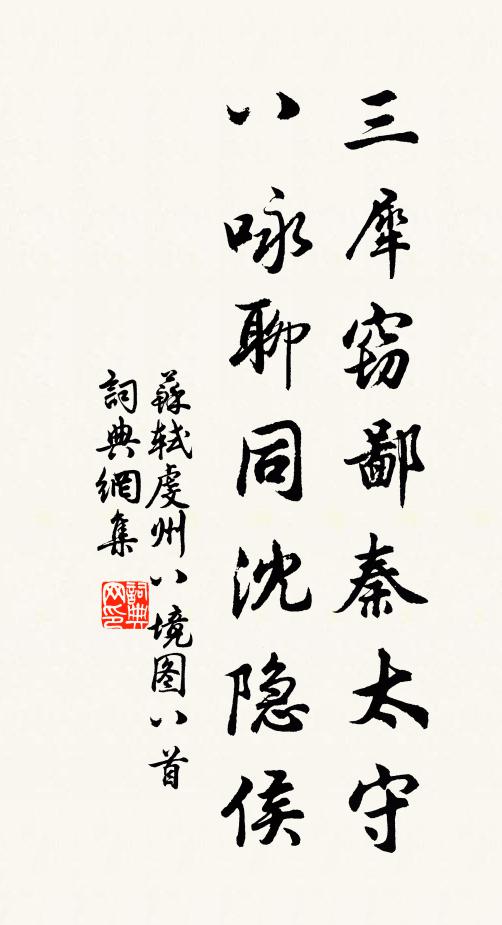 三犀窃鄙秦太守
八咏聊同沈隐侯
蘇軾虔州八境图八首
詞典網集
詞典网印